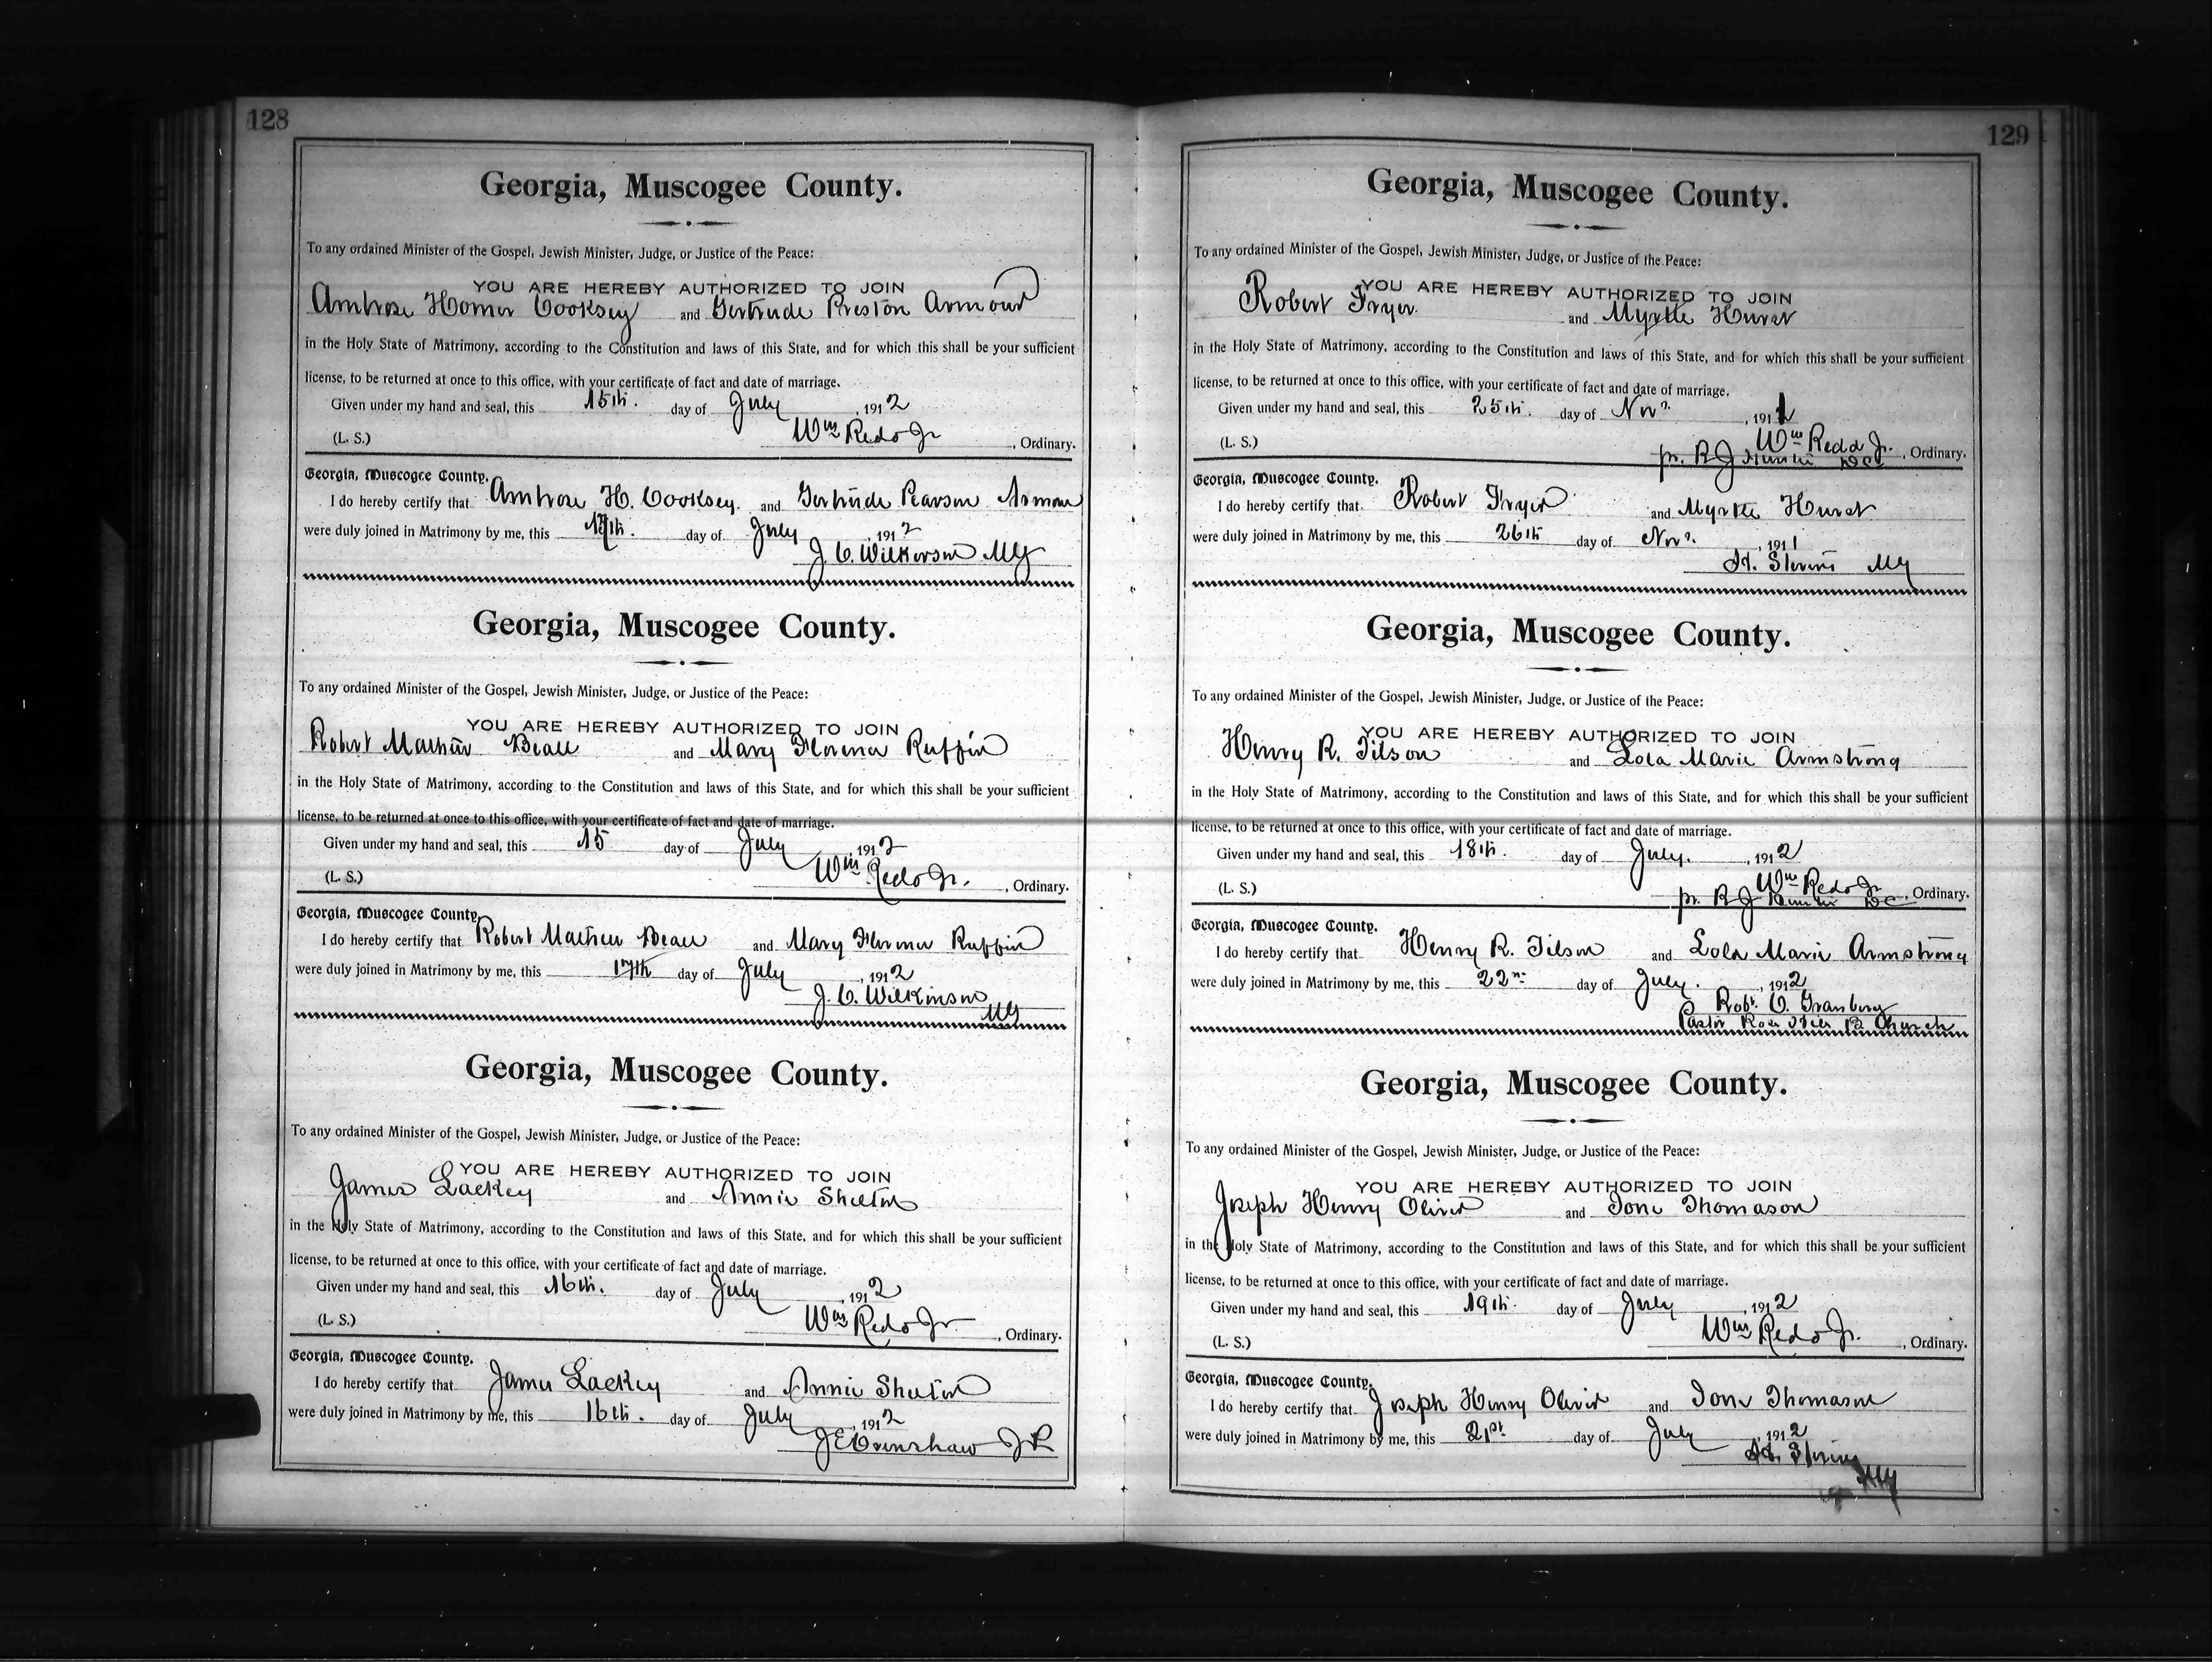 128
Georgia, Muscogee County.
To any ordained Minister of the Gospel, Jewish Minister, Judge, or Justice of the Peace:
YOU ARE HEREBY AUTHORIZED TO JOIN
Ambrose Homer Cooksey and Gertrude Preston Armour
in the Holy State of Matrimony, according to the Constitution and laws of this State, and for which this shall be your sufficient
license, to be returned at once to this office, with your certificate of fact and date of marriage.
Given under my hand and seal, this 15th. day of July, 1912
Wm Redd Jr
(L. S.) , Ordinary.
Georgia, Muscogee County.
I do hereby certify that Ambrose H. Cooksey. and Gertrude Pearson Armour
were duly joined in Matrimony by me, this 17th. day of July, 1912
J. C. Wilkerson MG
Georgia, Muscogee County.
To any ordained Minister of the Gospel, Jewish Minister, Judge, or Justice of the Peace:
YOU ARE HEREBY AUTHORIZED TO JOIN
Robert Mathew Beall and Mary Florence Ruffin
in the Holy State of Matrimony, according to the Constitution and laws of this State, and for which this shall be your sufficient
license, to be returned at once to this office, with your certificate of fact and date of marriage.
Given under my hand and seal, this 15 day of July, 1912
Wm Redd Jr.
(L. S.) , Ordinary.
Georgia, Muscogee County.
I do hereby certify that Robert Mathew Beall and Mary Florence Ruffin
were duly joined in Matrimony by me, this 17th day of July, 1912
J. C. Wilkinson
MG
Georgia, Muscogee County.
To any ordained Minister of the Gospel, Jewish Minister, Judge, or Justice of the Peace:
YOU ARE HEREBY AUTHORIZED TO JOIN
James Lackey and Annie Shelton
in the Holy State of Matrimony, according to the Constitution and laws of this State, and for which this shall be your sufficient
license, to be returned at once to this office, with your certificate of fact and date of marriage.
Given under my hand and seal, this 16th. day of July, 1912
Wm Redd Jr
(L. S.) , Ordinary.
Georgia, Muscogee County.
I do hereby certify that James Lackey and Annie Shelton
were duly joined in Matrimony by me, this 16th. day of July, 1912
J E Crenshaw J P
129
Georgia, Muscogee County.
To any ordained Minister of the Gospel, Jewish Minister, Judge, or Justice of the Peace:
YOU ARE HEREBY AUTHORIZED TO JOIN
Robert Fryer. and Myrtle Hurst
in the Holy State of Matrimony, according to the Constitution and laws of this State, and for which this shall be your sufficient
license, to be returned at once to this office, with your certificate of fact and date of marriage.
Given under my hand and seal, this 25th. day of Nov., 1911
Wm Redd Jr.
(L. S.) pr. R J Hunter DC , Ordinary.
Georgia, Muscogee County.
I do hereby certify that Robert Fryer and Myrtle Hurst
were duly joined in Matrimony by me, this 26th day of Nov., 1911
Stevens MG
Georgia, Muscogee County.
To any ordained Minister of the Gospel, Jewish Minister, Judge, or Justice of the Peace:
YOU ARE HEREBY AUTHORIZED TO JOIN
Henry R. Tilson and Lola Marie Armstrong
in the Holy State of Matrimony, according to the Constitution and laws of this State, and for which this shall be your sufficient
license, to be returned at once to this office, with your certificate of fact and date of marriage.
Given under my hand and seal, this 18th. day of July., 1912
Wm Redd Jr
(L. S.) pr. R J Hunter DC , Ordinary.
Georgia, Muscogee County.
I do hereby certify that Henry R. Tilson and Lola Marie Armstrong
were duly joined in Matrimony by me, this 22nd day of July., 1912
Robt. O. Granberry
Pastor Rose Hill B Church
Georgia, Muscogee County.
To any ordained Minister of the Gospel, Jewish Minister, Judge, or Justice of the Peace:
YOU ARE HEREBY AUTHORIZED TO JOIN
Joseph Henry Oliver and Ione Thomason
in the Holy State of Matrimony, according to the Constitution and laws of this State, and for which this shall be your sufficient
license, to be returned at once to this office, with your certificate of fact and date of marriage.
Given under my hand and seal, this 19th. day of July, 1912
Wm Redd Jr.
(L. S.) , Ordinary.
Georgia, Muscogee County.
I do hereby certify that Joseph Henry Oliver and Ione Thomason
were duly joined in Matrimony by me, this 21st day of July, 1912
Stevens
MG